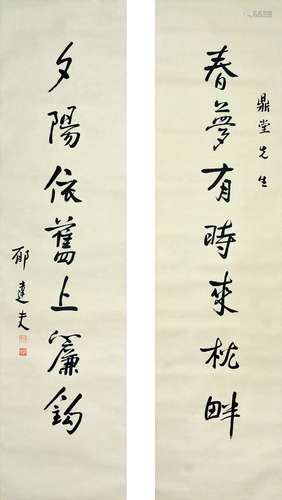 鼎堂先生
春夢有時來枕畔
夕陽依舊上簾鈎
郁達夫